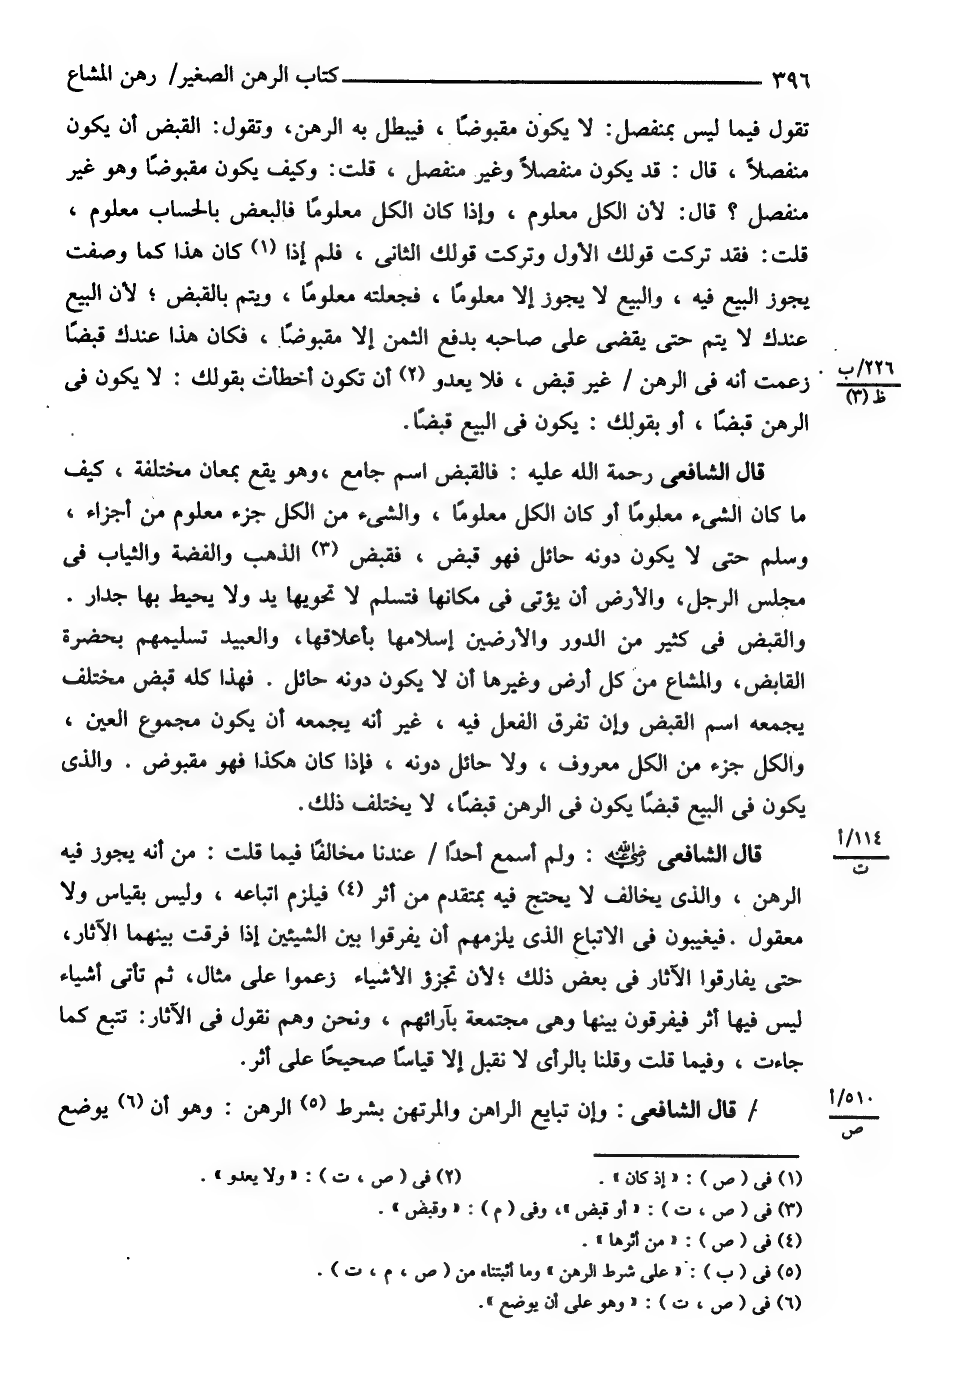 ٣٩٦ ـــــــــــــــــــــــــــــــــــــــــ كتاب الرهن الصغير/ رهن المشاع
تقول فيما ليس بمنفصل: لا يكون مقبوضًا ، فيبطل به الرهن، وتقول: القبض أن يكون
منفصلاً ، قال : قد يكون منفصلاً وغير منفصل ، قلت: وكيف يكون مقبوضًا وهو غير
منفصل ؟ قال: لأن الكل معلوم ، وإذا كان الكل معلومًا فالبعض بالحساب معلوم ،
قلت: فقد تركت قولك الأول وتركت قولك الثانى ، فلم إذا (١) كان هذا كما وصفت
يجوز البيع فيه ، والبيع لا يجوز إلا معلومًا ، فجعلته معلومًا ، ويتم بالقبض ؛ لأن البيع
عندك لا يتم حتى يقضى على صاحبه بدفع الثمن إلا مقبوضًا ، فكان هذا عندك قبضًا
زعمت أنه فى الرهن / غير قبض ، فلا يعدو (٢) أن تكون أخطأت بقولك : لا يكون فى
٢٢٦/ب
ظ (٣)
الرهن قبضًا ، أو بقولك : يكون فى البيع قبضًا.
قال الشافعى رحمة الله عليه : فالقبض اسم جامع ،وهو يقع بمعان مختلفة ، كيف
ما كان الشىء معلومًا أو كان الكل معلومًا ، والشىء من الكل جزء معلوم من أجزاء ،
وسلم حتى لا يكون دونه حائل فهو قبض ، فقبض (٣) الذهب والفضة والثياب فى
مجلس الرجل، والأرض أن يؤتى فى مكانها فتسلم لا تحويها يد ولا يحيط بها جدار .
والقبض فى كثير من الدور والأرضين إسلامها بأعلاقها، والعبيد تسليمهم بحضرة
القابض، والمشاع من كل أرض وغيرها أن لا يكون دونه حائل . فهذا كله قبض مختلف
يجمعه اسم القبض وإن تفرق الفعل فيه ، غير أنه يجمعه أن يكون مجموع العين ،
والكل جزء من الكل معروف ، ولا حائل دونه ، فإذا كان هكذا فهو مقبوض . والذى
يكون فى البيع قبضًا يكون فى الرهن قبضًا، لا يختلف ذلك.
قال الشافعى رضي الله عنه : ولم أسمع أحدًا / عندنا مخالفًا فيما قلت : من أنه يجوز فيه
١١٤/أ
ت
الرهن ، والذى يخالف لا يحتج فيه بمتقدم من أثر (٤) فيلزم اتباعه ، وليس بقياس ولا
معقول .فيغيبون فى الاتباع الذى يلزمهم أن يفرقوا بين الشيئين إذا فرقت بينهما الآثار،
حتى يفارقوا الآثار فى بعض ذلك ؛لأن تجزؤ الأشياء زعموا على مثال، ثم تأتى أشياء
ليس فيها أثر فيفرقون بينها وهى مجتمعة بآرائهم ، ونحن وهم نقول فى الآثار: تتبع كما
جاءت ، وفيما قلت وقلنا بالرأى لا نقبل إلا قياسًا صحيحًا على أثر.
/ قال الشافعى : وإن تبايع الراهن والمرتهن بشرط (٥) الرهن : وهو أن (٦) يوضع
٥١٠/أ
ص
(١) فى ( ص ) : « إذ كان» . (٢) فى ( ص ، ت ) : « ولا يعدو » .
(٣) فى ( ص ، ت ) : « أو قبض »، وفى ( م ) : « وقبض » .
(٤) فى ( ص ) : « من أثرها » .
(٥) فى ( ب ) : « على شرط الرهن » وما أثبتناه من ( ص ، م ، ت ) .
(٦) فى ( ص ، ت ) : « وهو على أن يوضع ».